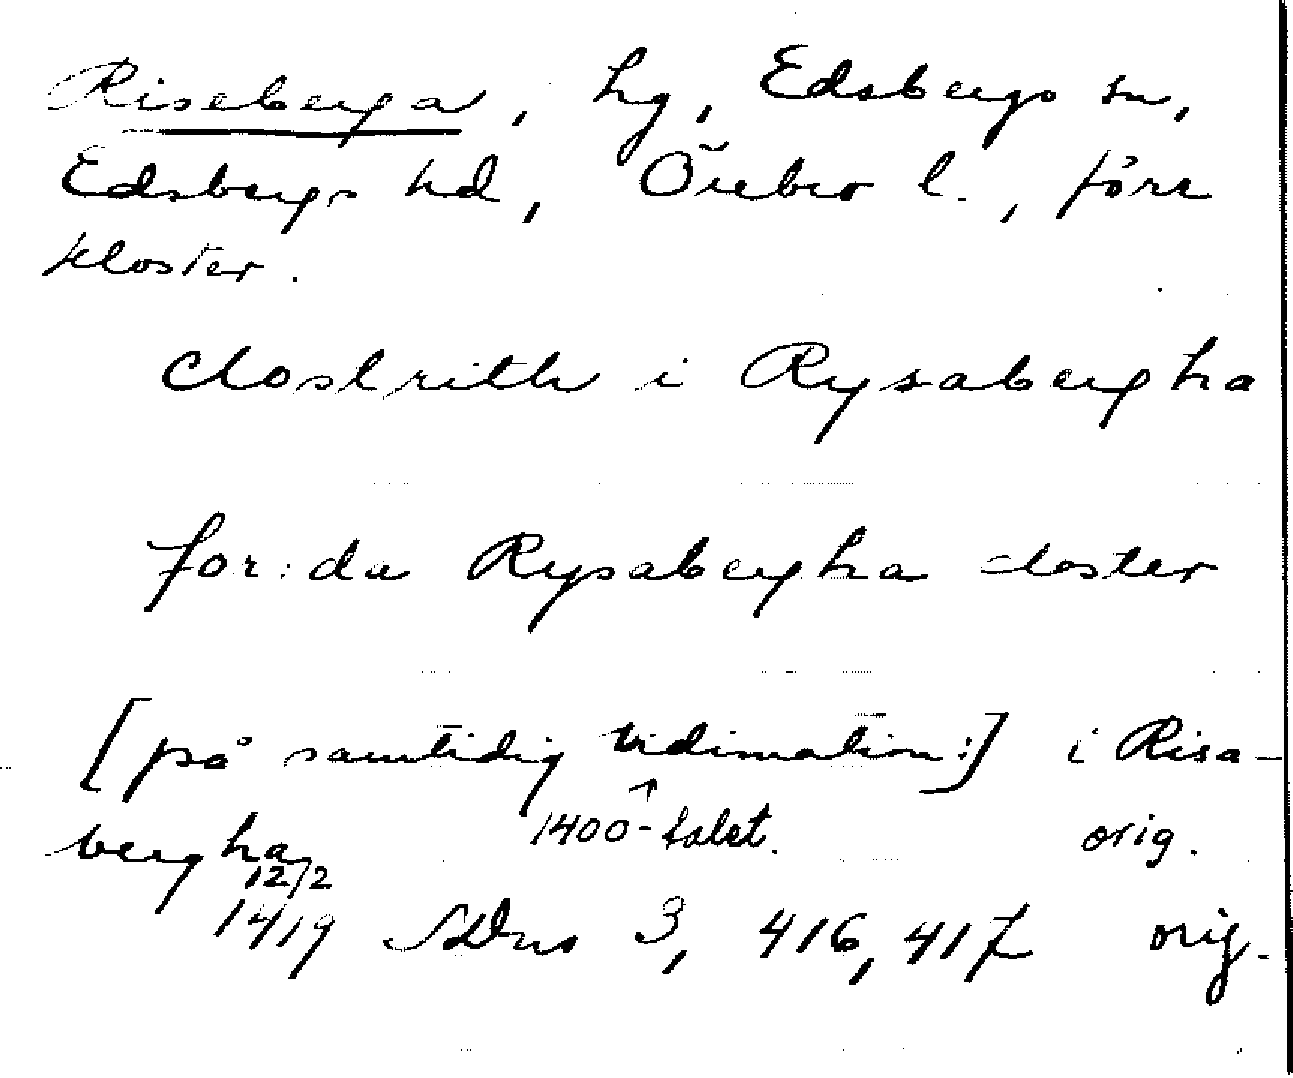 Riseberga, hg, Edsbergs sn,
Edsbergs hd, Örebro l., förr
kloster.
clostrith i Rysabergha
for:da Rysabergha closter
[på samtidig vidimation:] i Risa-
1400-talet. orig.
bergha
12/2
1419 SDns 3, 416, 417 orig.